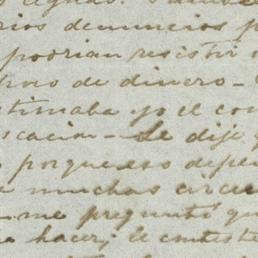 rios denuncios p
podrian resistir
de dinero –
timaba yo el con
cacion – Le dije q
porque eso depen
muchas circu
me preguntó qu
hacer; le contesté